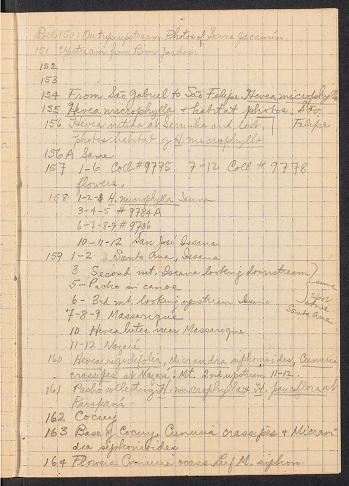 150: On trip upstream Photos of Serra Jacamin.
151 Upstream from Bom Jardim
152
153
154 From São Gabriel to São Felipe. Hevea microphylla
155 Hevea microphylla + habitat photos, São Felipe
156 Hevea nitida at Serrinha and
photos habitat of H. microphylla
156A Same
157 1-6. Coll #9775. 7-12 Coll # 9778
flowers,
158 1-2- H. microphylla Issana
3-4-5 # 9784A
6-7-8-9 # 9786
10-11-12 San José Issana
159 1-2 Santa Ana, Issana
3 Second mt. Issana looking downstream
5- Pacho in canoe
6- 3rd mt. looking upstream Issana
Santa Ana
7-8-9 Massarique
10 Hevea lutea near Massarique
11-12 Nazaré
160 Hevea rigidifolia, Micrandra siphonoides, Cunuria
crassipes at Nazaré. Mt. 2nd upstream 11-12.
161 Pacho collecting H. microphylla & H. pauciflora at
Karapaná
162 Cocuy
163 Base of Cocuy, Cunuria crassipes & Micran-
dra siphonoides
164 Flowers Cunuria crass. Leaf M. siphon.